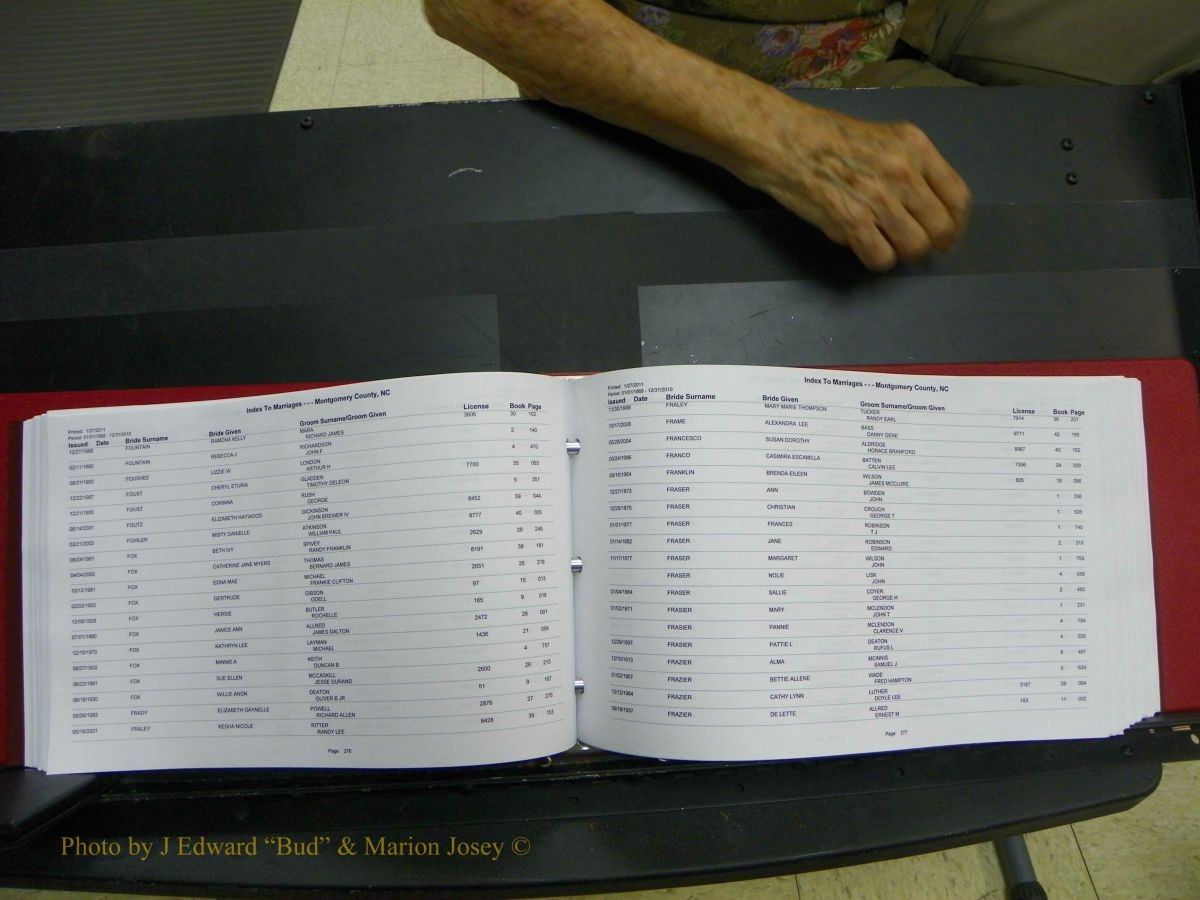 Index To Marriages - - - Montgomery County, NC
Printed: 1/27/2011
Period: 01/01/1868 - 12/31/2010
Issued Date Bride Surname Bride Given Groom Surname/Groom Given License Book Page
12/27/1988 FOUNTAIN RAMONA KELLY MARA 3808 30 102
RICHARD JAMES
02/11/1882 FOUNTAIN REBECCA J RICHARDSON 2 140
JOHN F
08/31/1900 FOUSHEE LIZZIE W LONDON 4 470
ARTHUR H
12/22/1997 FOUST CHERYL ETURIA GLADDEN 7700 35 063
TIMOTHY DELEON
12/21/1903 FOUST CORINNA RUSH 5 351
GEORGE
06/14/2001 FOUTZ ELIZABETH HAYWOOD DICKINSON 8452 39 044
JOHN BREWER IV
03/21/2003 FOWLER MISTY DANIELLE ATKINSON 8777 40 005
WILLIAM PAUL
08/24/1981 FOX BETH IVY SPIVEY 2629 26 246
RANDY FRANKLIN
04/04/2000 FOX CATHERINE JANE MYERS THOMAS 8191 38 181
BERNARD JAMES
10/13/1981 FOX EDNA MAE MICHAEL 2651 26 218
FRANKIE CLIFTON
02/03/1953 FOX GERTRUDE GIBSON 97 15 013
ODELL
12/08/1928 FOX HERSIE BUTLER 185 9 018
ROCHELLE
07/01/1980 FOX JANICE ANN ALLRED 2472 26 001
JAMES DALTON
12/10/1970 FOX KATHRYN LEE LAYMAN 1436 21 059
MICHAEL
06/27/1902 FOX MINNIE A KEITH 4 757
DUNCAN B
06/23/1981 FOX SUE ELLEN MCCASKILL 2600 26 213
JESSE DURAND
06/18/1930 FOX WILLIE ANON DEATON 51 9 167
OLIVER B JR
05/26/1983 FRADY ELIZABETH GAYNELLE POWELL 2876 27 276
RICHARD ALLEN
05/18/2001 FRALEY KESHA NICOLE RITTER 8428 39 153
RANDY LEE
Page 276
Index To Marriages - - - Montgomery County, NC
Printed: 1/27/2011
Period: 01/01/1868 - 12/31/2010
Issued Date Bride Surname Bride Given Groom Surname/Groom Given License Book Page
11/30/1998 FRALEY MARY MARIE THOMPSON TUCKER 7914 36 201
RANDY EARL
10/17/2008 FRAME ALEXANDRA LEE BASS 9711 42 166
DANNY GENE
05/28/2004 FRANCESCO SUSAN DOROTHY ALDRIDGE 8967 40 162
HORACE BRANFORD
05/24/1996 FRANCO CASIMIRA ESCAMILLA BATTEN 7398 34 009
CALVIN LEE
09/18/1964 FRANKLIN BRENDA EILEEN WILSON 805 18 086
JAMES MCCLURE
12/27/1873 FRASER ANN BOWDEN 1 336
JOHN
12/26/1875 FRASER CHRISTIAN CROUCH 1 526
GEORGE T
01/01/1877 FRASER FRANCES ROBINSON 1 740
T J
01/14/1882 FRASER JANE ROBINSON 2 315
EDWARD
11/17/1877 FRASER MARGARET WILSON 1 759
JOHN
FRASER NOLIE LISK 4 056
JOHN
01/04/1884 FRASER SALLIE COYER 2 450
GEORGE H
01/02/1871 FRASIER MARY MCLENDON 1 231
JOHN T
FRASIER PANNIE MCLENDON 4 194
CLARENCE V
12/29/1897 FRASIER PATTIE L DEATON 4 026
RUFUS L
12/10/1913 FRAZIER ALMA MCINNIS 6 487
SAMUEL J
01/02/1907 FRAZIER BETTIE ALLENE WADE 5 634
FRED HAMPTON
12/12/1984 FRAZIER CATHY LYNN LUTHER 3157 28 094
DOYLE LEE
09/18/1937 FRAZIER DE LETTE ALLRED 193 11 002
ERNEST M
Page 277
Photo by J Edward “Bud” & Marion Josey ©